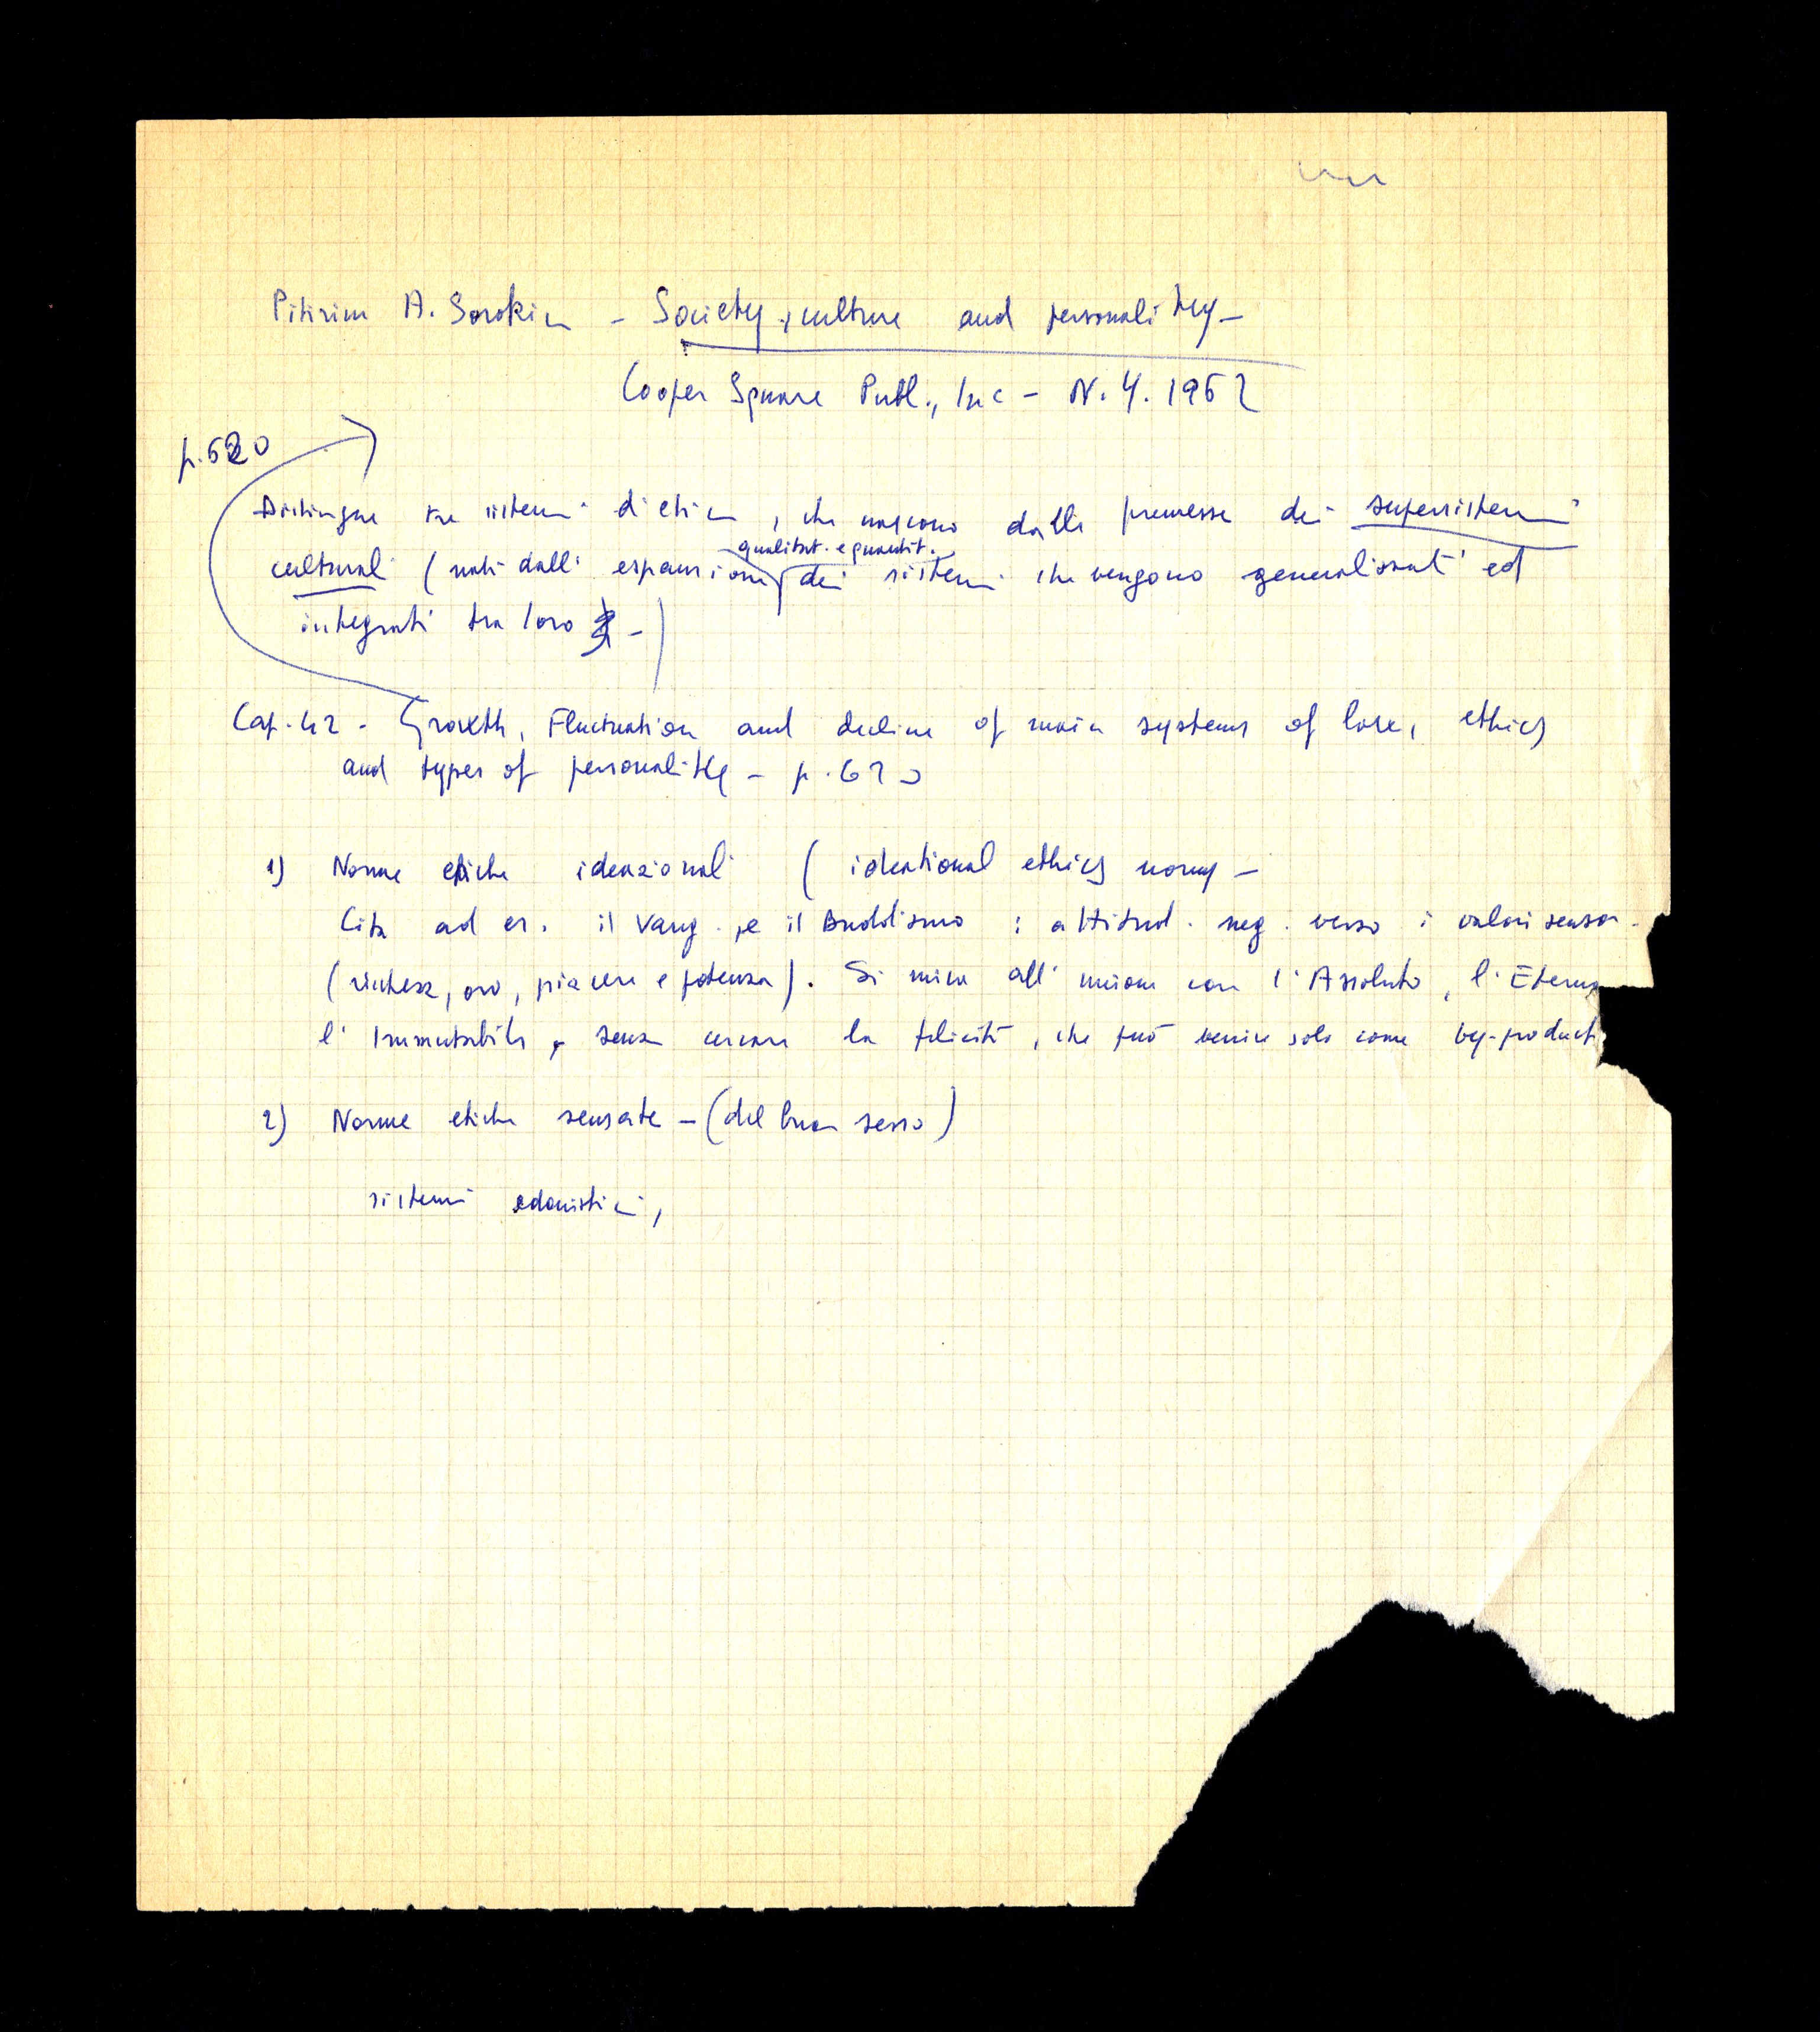 Pitirim A. Sorokin - Society, culture and personality -
Cooper Square Publ., Inc - N.Y. 1962
p. 620
Distingue tre sistemi di etica, che nascono dalle premesse dei supersistemi
qualitat. e quantit.
culturali (nati dalle espansioni dei sistemi che vengono generalizzati ed
integrati tra loro -)
Cap. 42 - Growth, Fluctuation and decline of main systems of law, ethics
and types of personality - p. 620
1) Norme etiche ideazionali (ideational ethics norms -
Cita ad es. il Vang. e il Buddismo : attitud. neg. verso i valori sensor.
(ricchezza, oro, piacere e potenza). Si mira all' unione con l'Assoluto, l'Eterno
l'Immutabile, senza cercare la felicità, che può venire solo come by-product
2) Norme etiche sensate - (del buon senso)
sistemi edonistici,